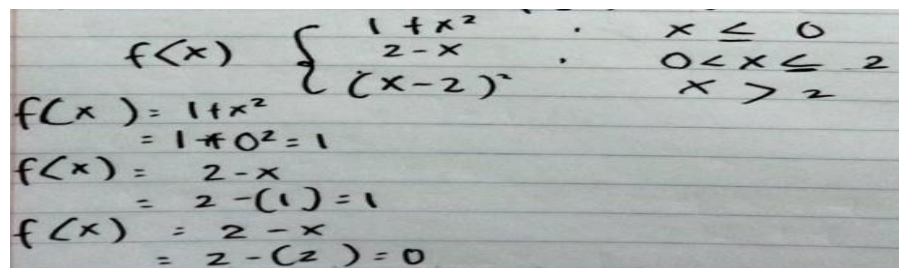 f(x) { 1 + x² . x ≤ 0
2 - x . 0 < x ≤ 2
(x-2)² x > 2
f(x) = 1+x²
= 1+0² = 1
f(x) = 2-x
= 2-(1) = 1
f(x) = 2-x
= 2-(2) = 0